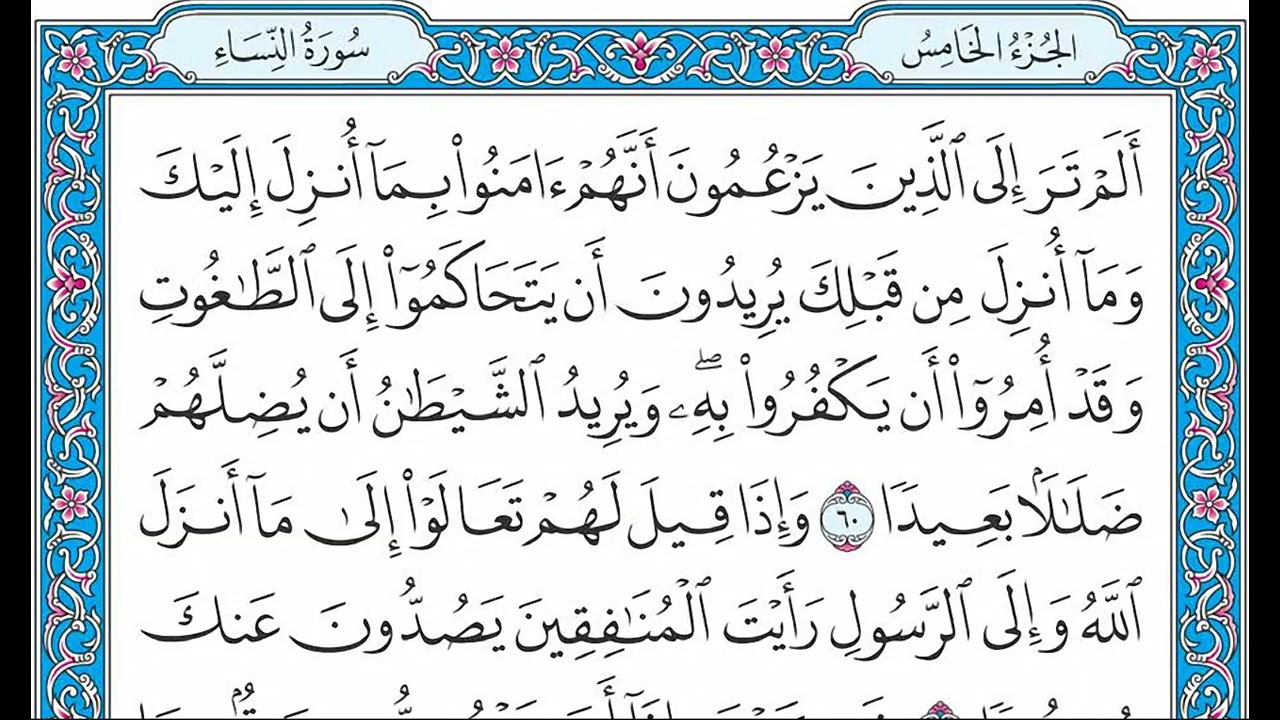 الجُزْءُ الخَامِسُ
سُورَةُ النِّسَاءِ
أَلَمْ تَرَ إِلَى ٱلَّذِينَ يَزْعُمُونَ أَنَّهُمْ ءَامَنُوا۟ بِمَآ أُنزِلَ إِلَيْكَ
وَمَآ أُنزِلَ مِن قَبْلِكَ يُرِيدُونَ أَن يَتَحَاكَمُوٓا۟ إِلَى ٱلطَّـٰغُوتِ
وَقَدْ أُمِرُوٓا۟ أَن يَكْفُرُوا۟ بِهِۦۖ وَيُرِيدُ ٱلشَّيْطَـٰنُ أَن يُضِلَّهُمْ
ضَلَـٰلَۢا بَعِيدًا ٦٠ وَإِذَا قِيلَ لَهُمْ تَعَالَوْا۟ إِلَىٰ مَآ أَنزَلَ
ٱللَّهُ وَإِلَى ٱلرَّسُولِ رَأَيْتَ ٱلْمُنَـٰفِقِينَ يَصُدُّونَ عَنكَ